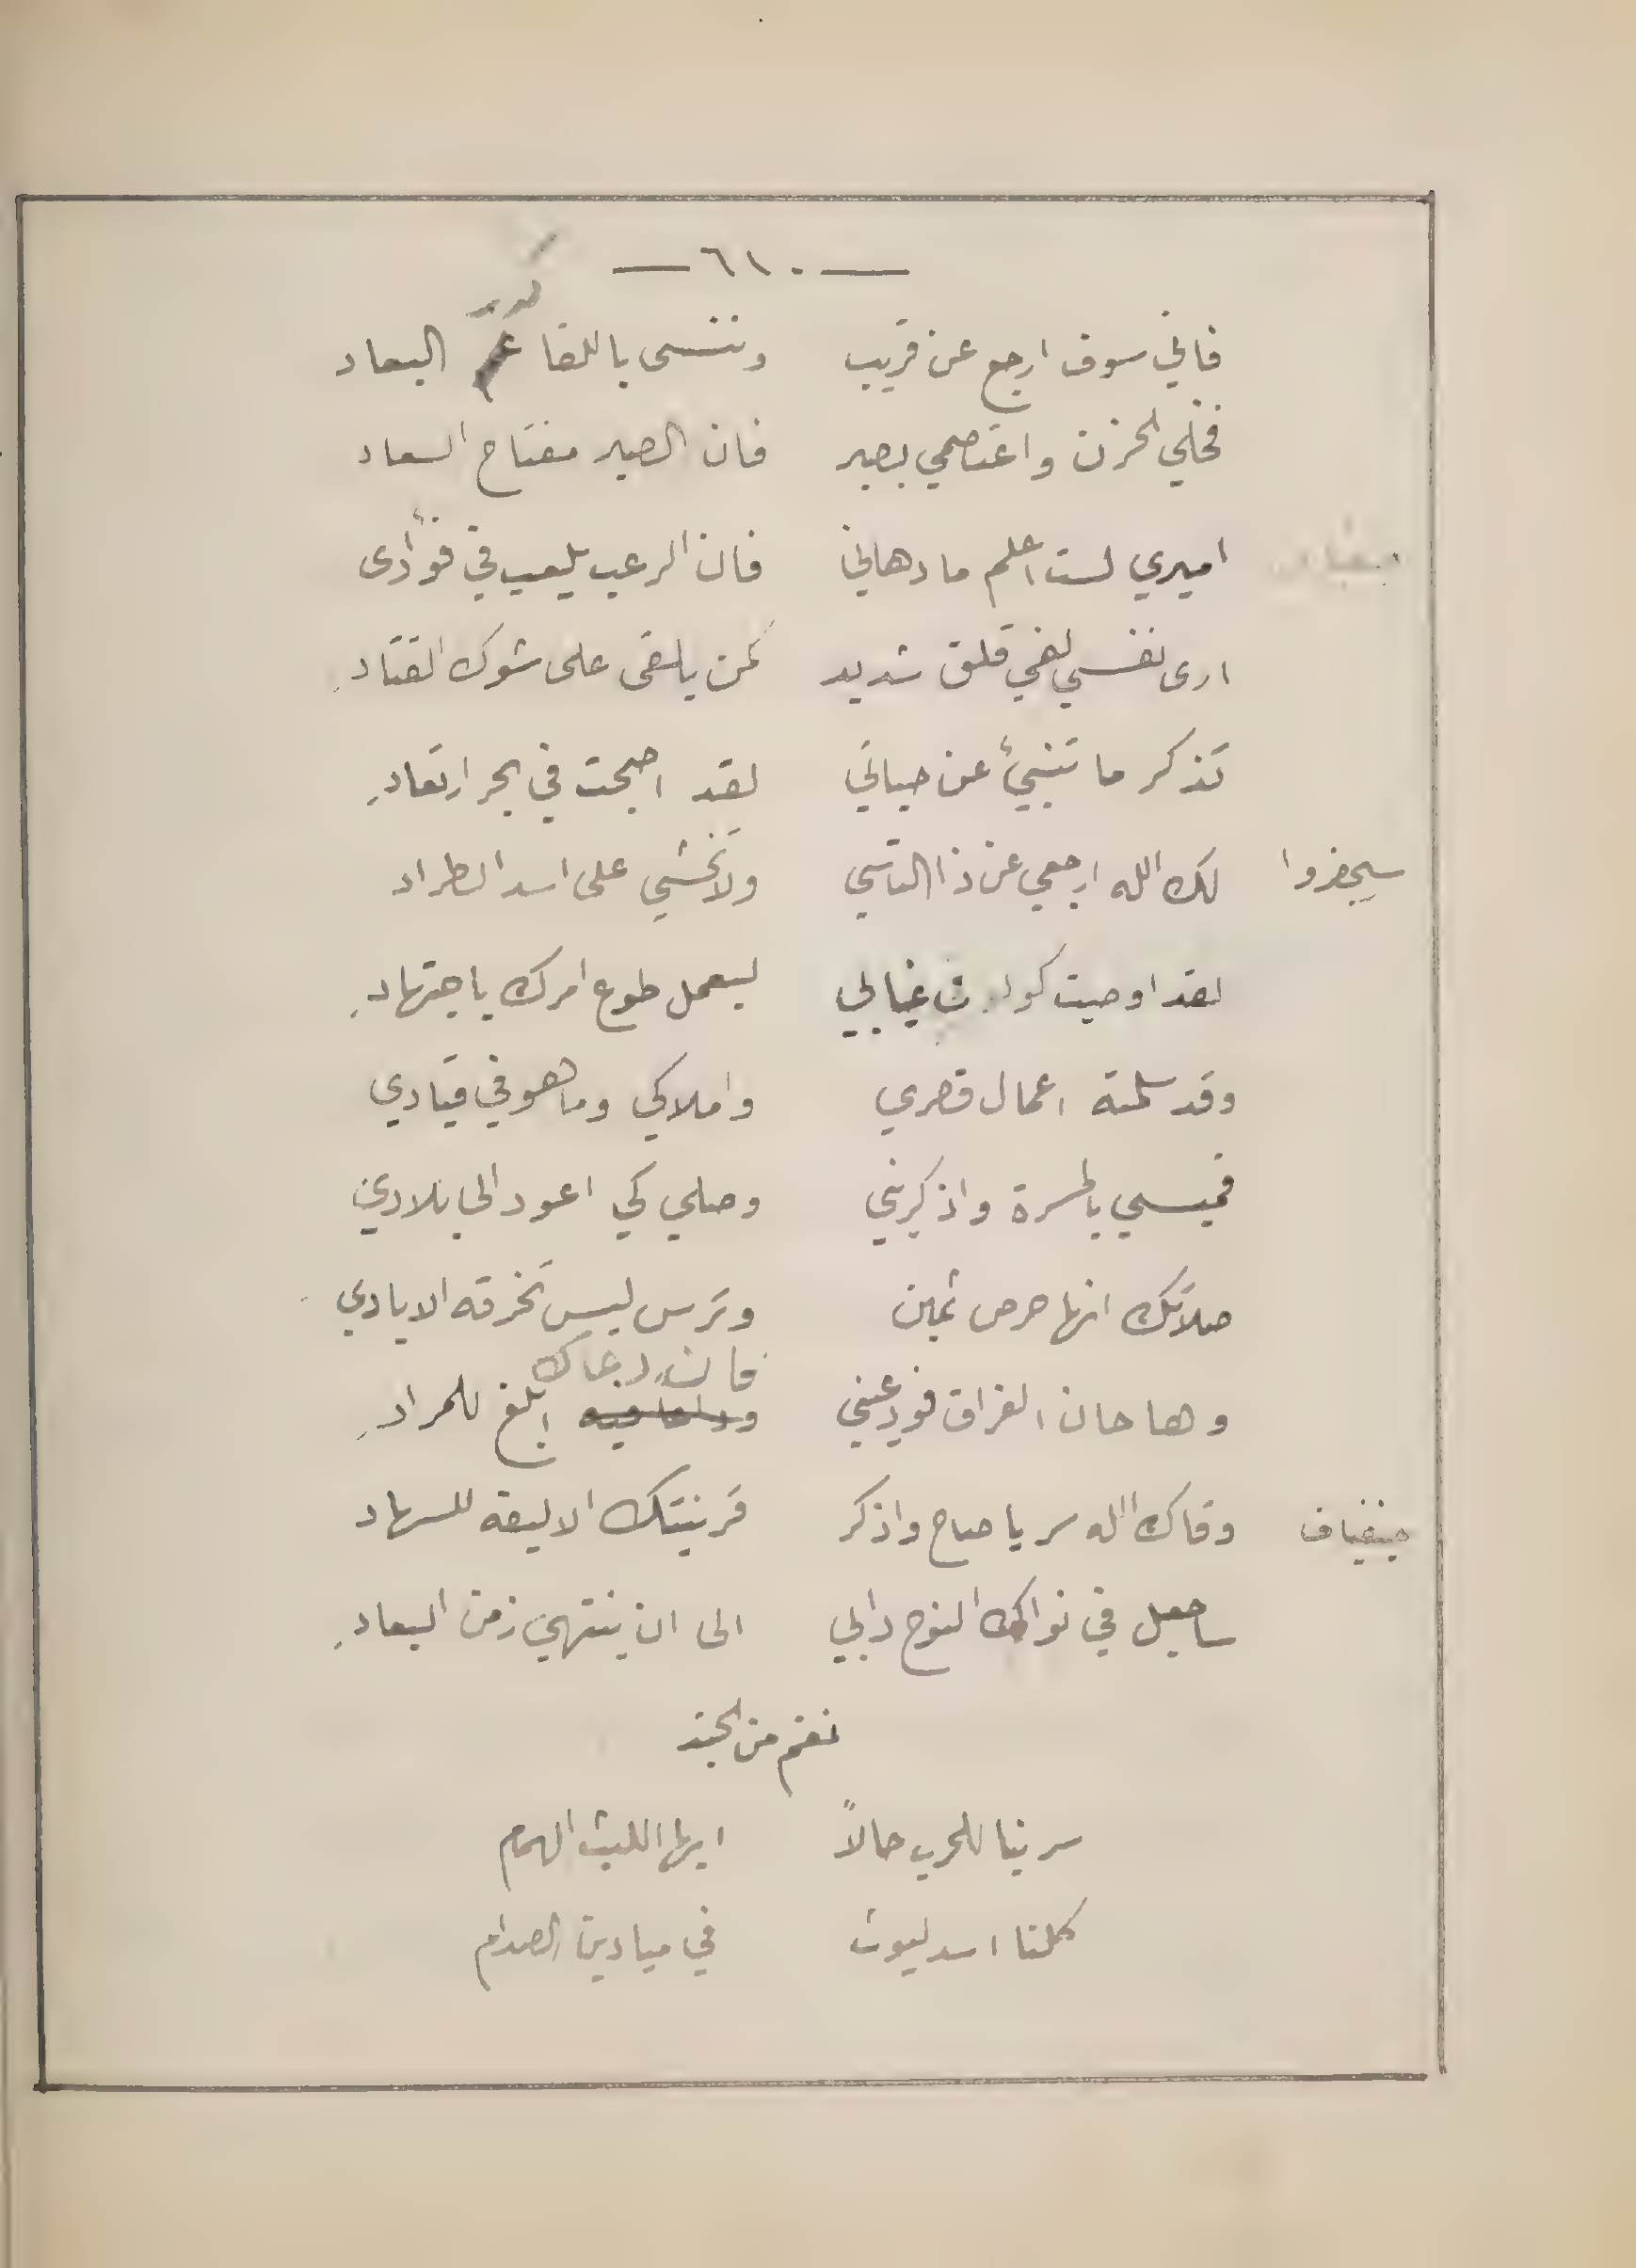 — ٦١٠ —
فاني سوف ارجع عن قريب وننسى باللقا كدر البعاد
فخلي الحزن واعتصمي بصبر فان الصبر مفتاح السعاد
اميري لست اعلم ما دهاني فان الرعب يلعب في فوأدى
ارى نفسي لفي قلق شديد كمن يلقى على شوك القتاد
تذكر ما تنبيء عن حياتي لقد اصبحت في بحر ارتعاد
سيجفروا لك الله ارجعي عن ذا التاسي ولا تخشي على اسد الطراد
لقد اوصيت كولو غيابي ليعمل طوع امرك باجتهاد
وقد سلمته اعمال قصري واملاكي وما هو في قيادي
فميسي بالمسرة واذكريني وصلي كي اعود الى بلادي
صلاتك انها حرص ثمين وترس ليس تخرقه الايادي
وها حان الفراق فودعيني فان دعاك ابلغ للمراد
جنفياف وقاك الله سر يا صاح واذكر قرينتك الاليفة للسهاد
ساجعل في نواك النوح دابي الى ان ينتهي زمن البعاد
نغم من الجند
سر بنا للحرب حالاً ايها الليث الهمام
كلنا اسد ليوث في ميادين الصدام